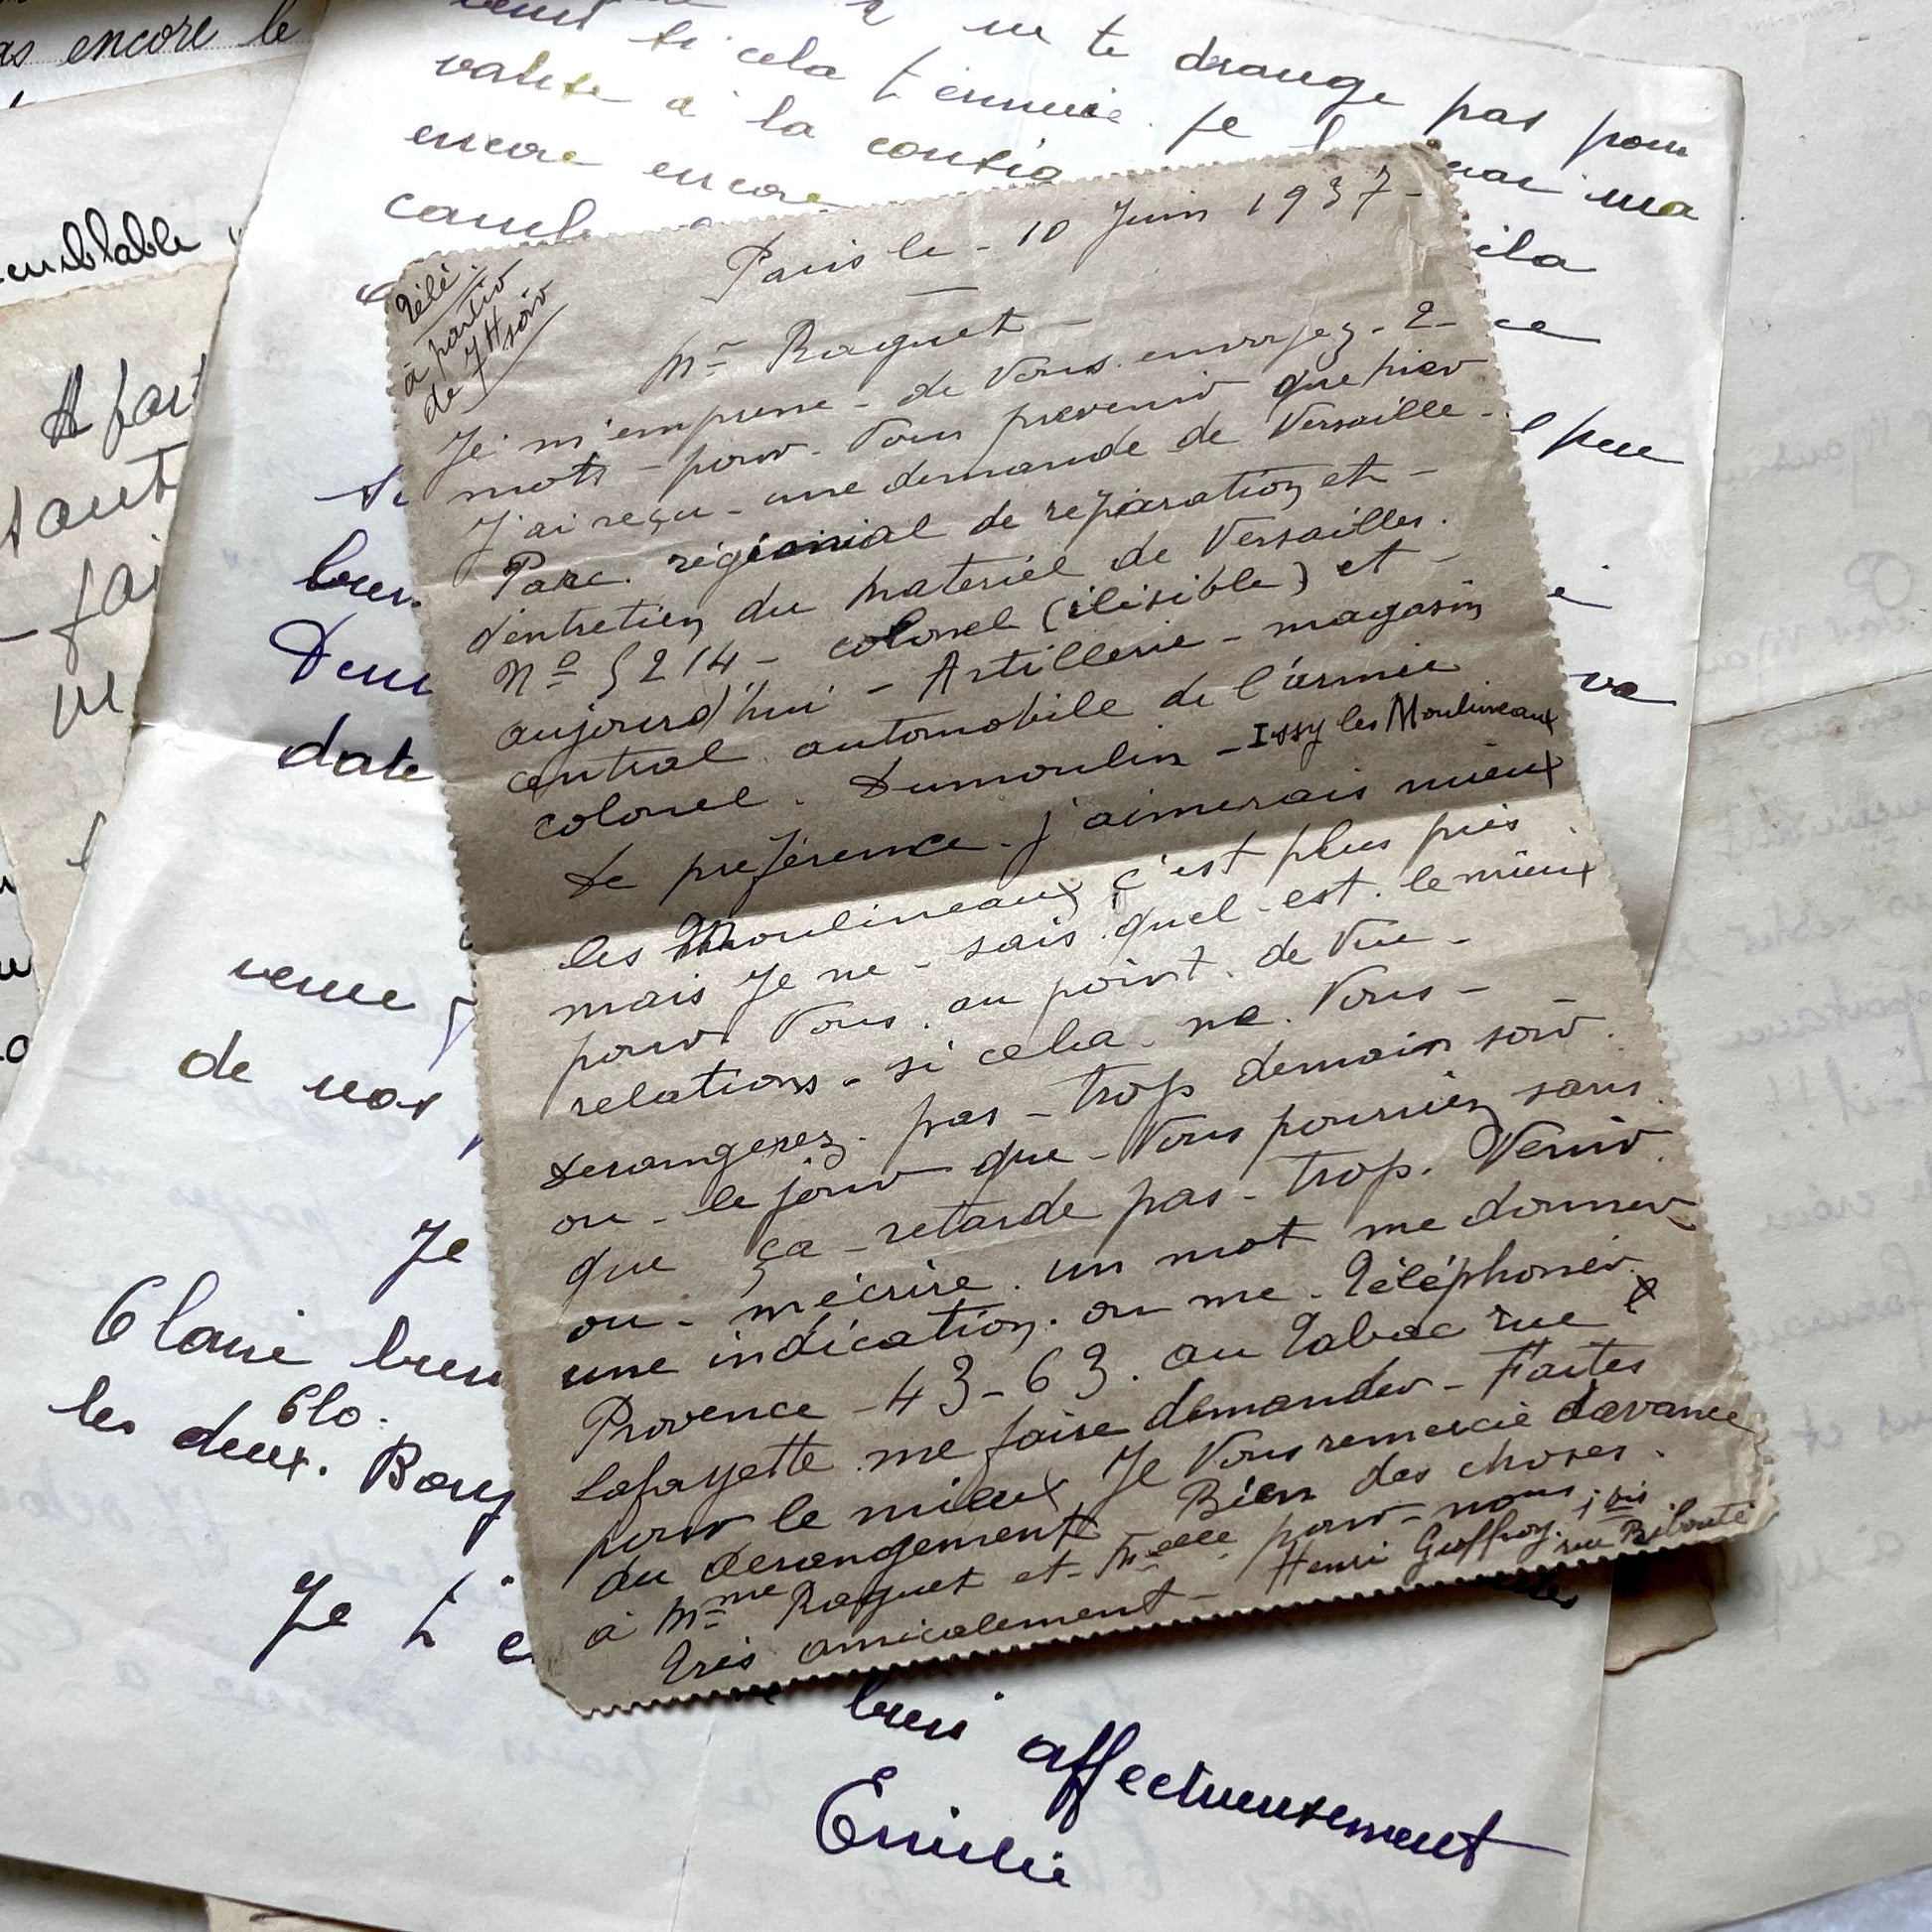 as encore le
emblable
A part
tout
fai
ne te drange pas pour
si cela t'ennuie. Je
valise à la consig
encore encore
ma
cela
ce
peu
bien
Dem
va
date
venue
de nos
Je
Claire bien
Clo.
les deux. Bony
Je t'e
bien affectueusement
Emilie
Télé.
à partir
de 7H soir
Paris le - 10 Juin 1937 -
Mr Raguet -
Je m'emprese - de Vous envoyez - 2 -
mots - pour - Vous prevenir que hier
J'ai reçu - une demande de Versaille -
Parc. régionial de reparation et -
d'entretien du materiel de Versailles.
No 5214 - colonel (ilisible) et -
aujourd'hui - Artillerie - magasin
central automobile de l'armée
colonel. Dumoulin - Issy les Moulineaux
de preference. j'aimerais mieux
les Moulineaux c'est plus près
mais Je ne - sais quel - est. le mieux
pour Vous. au point. de Vue -
relations - si cela. ne. Vous -
derangerez. pas - trop demain soir.
ou - le jour que - Vous pourriez sans.
que ça - retarde pas - trop. Venir.
ou - m'écrire. un mot me donner
une indication. ou me - Téléphoner.
Provence - 43-63. au Tabac rue
Lafayette me faire demander - Faites
pour le mieux Je Vous remercie davance
du derangement Bien des choses.
à Mme Raguet et - Melle pour - nous.
Très amicalement - Henri Geoffroy. 1 bis
rue Ribouté